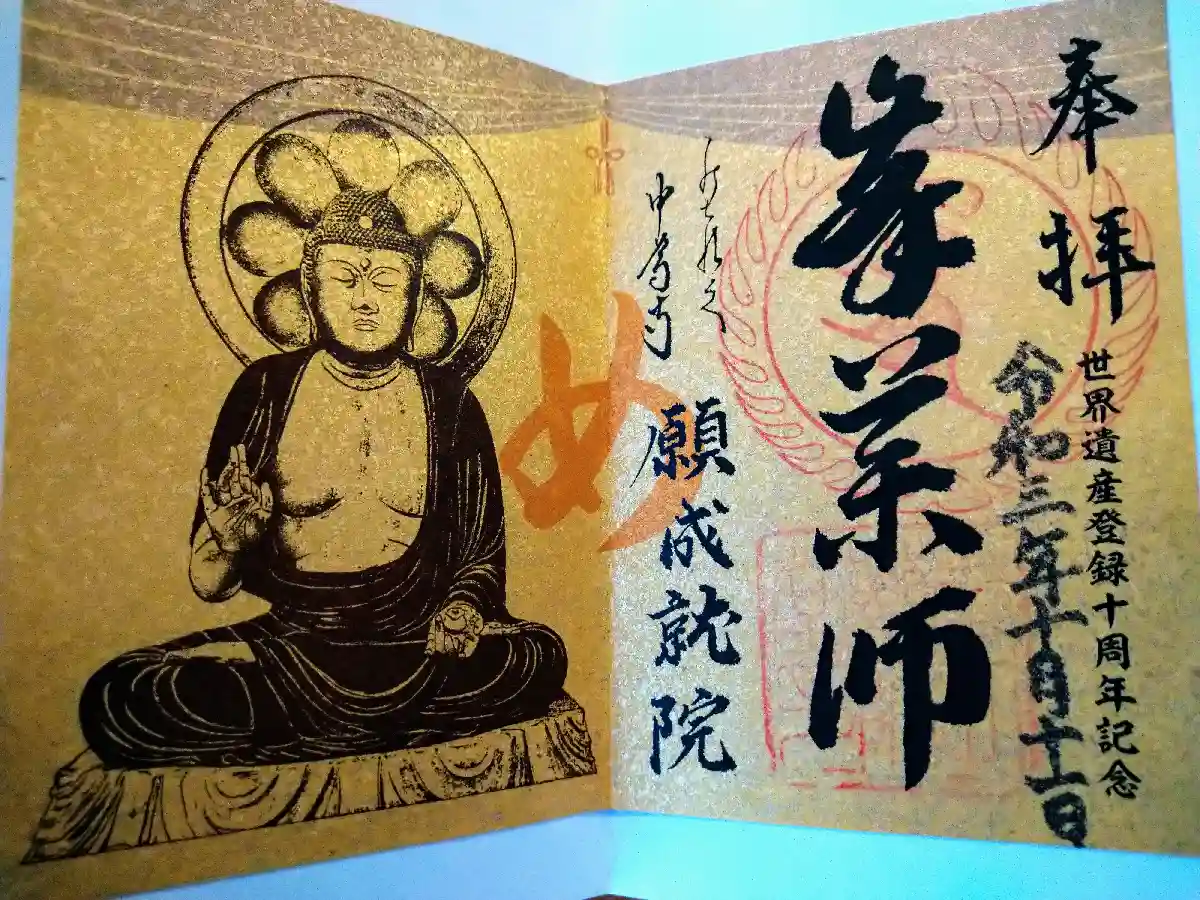 奉拝
世界遺産登録十周年記念
令和三年十月十一日
峯薬師
中尊寺
願成就院
め